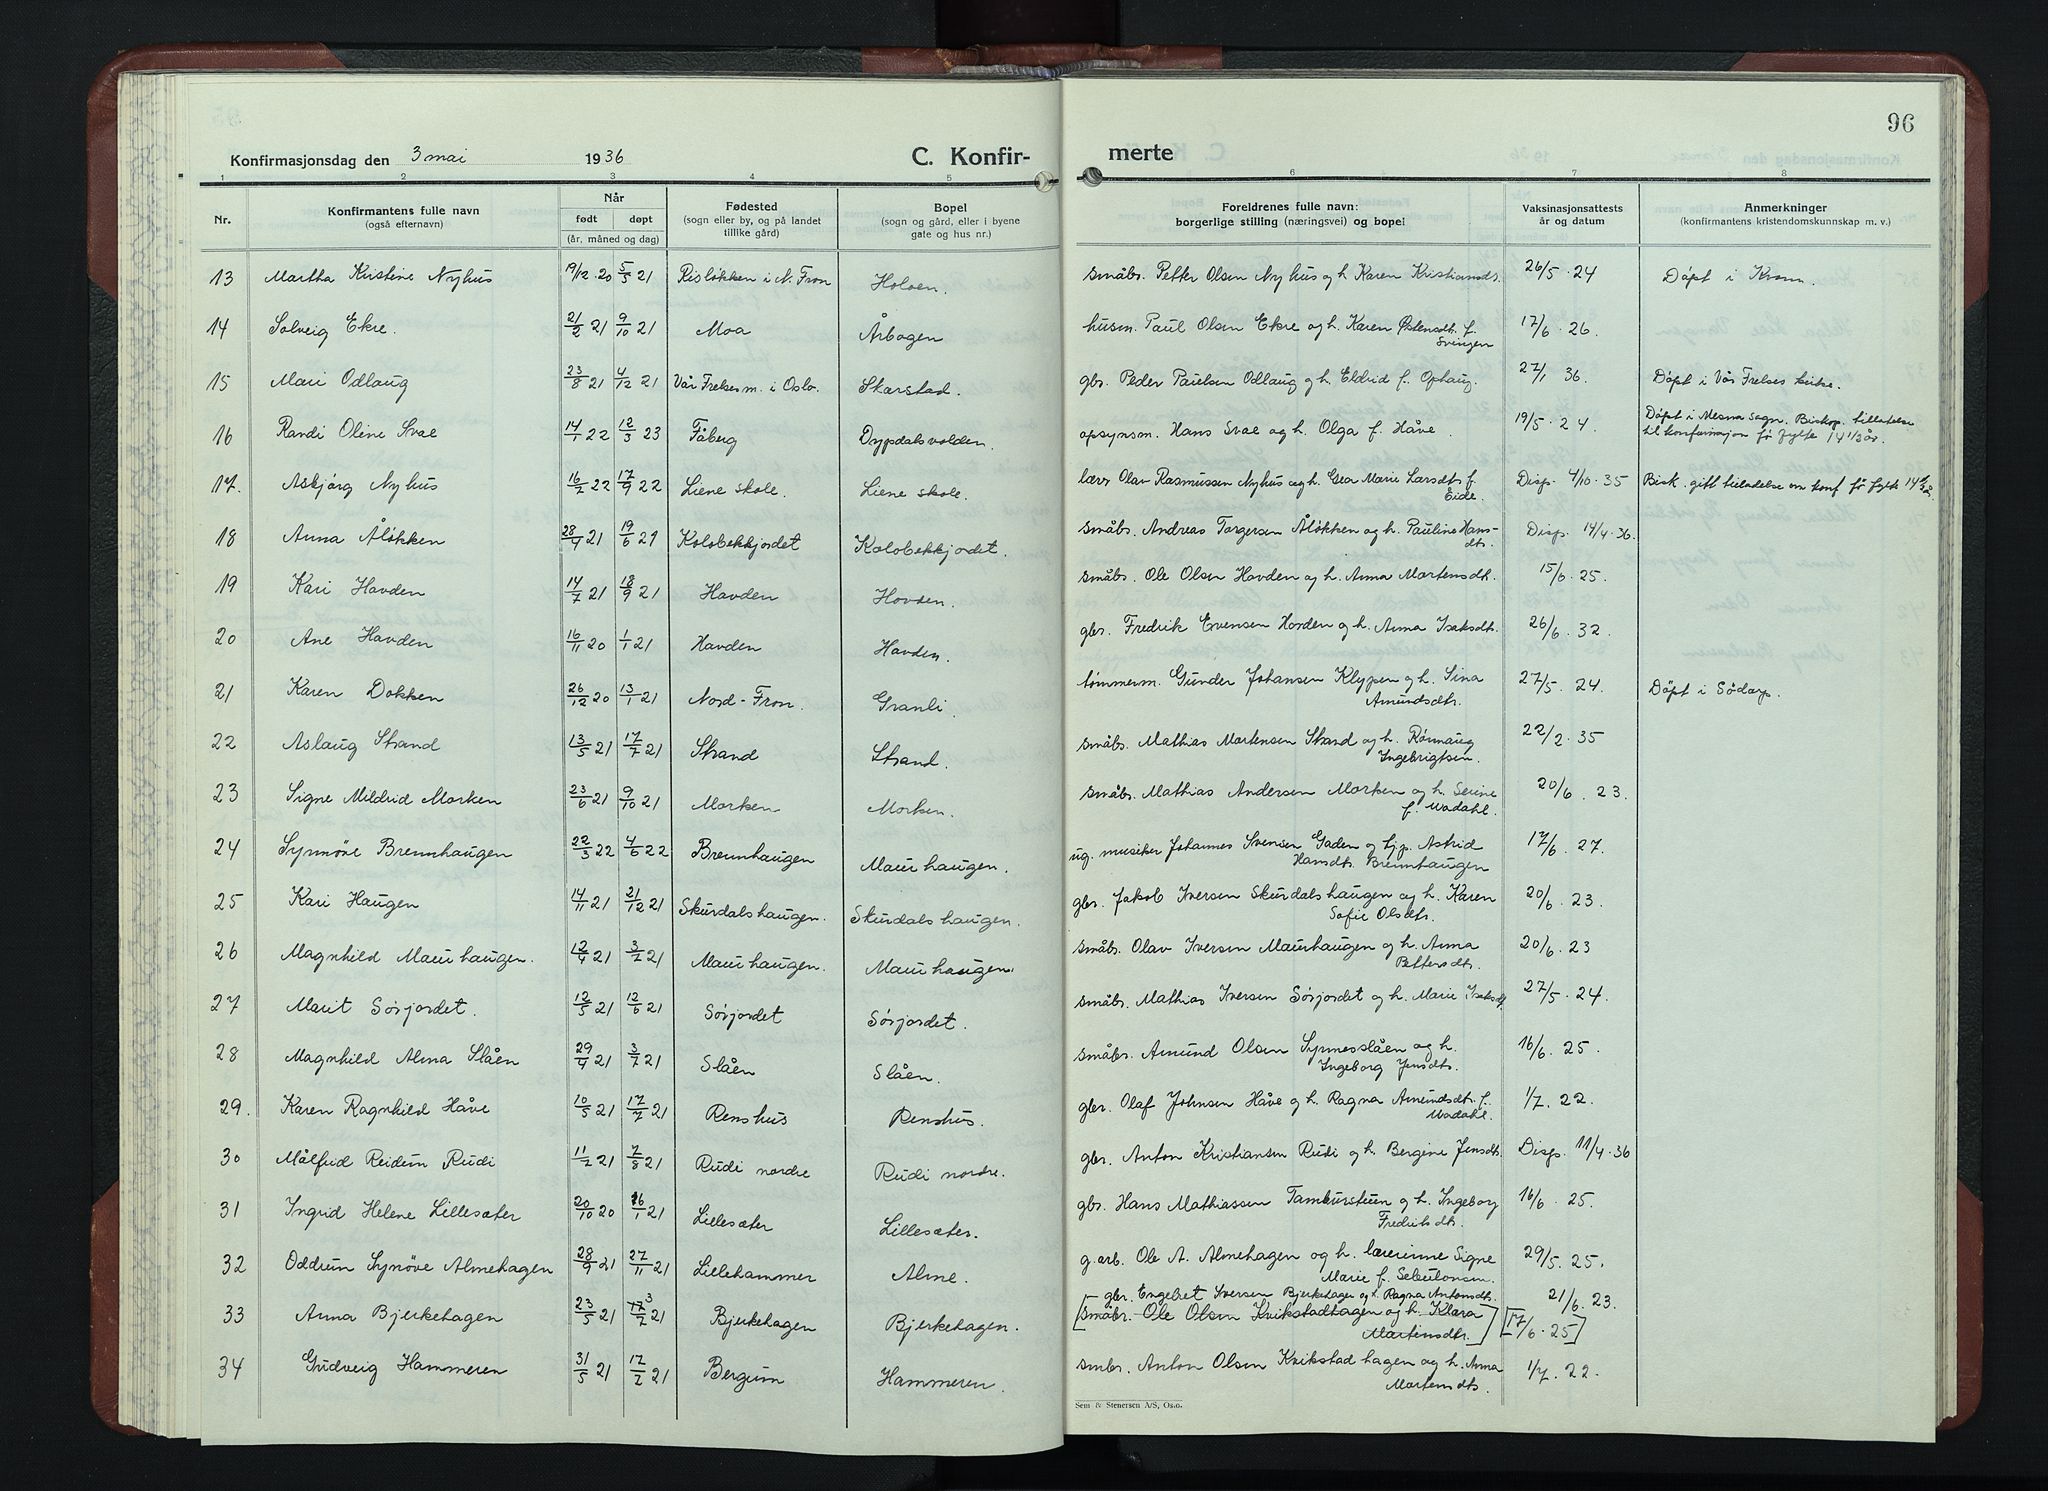 96
Konfirmasjonsdag den 3 mai 1936 C. Konfir- merte
1 2 3 4 5 6 7 8
Nr. Konfirmantens fulle navn (også efternavn) Når født døpt (år, måned og dag) Fødested (sogn eller by, og på landet tillike gård) Bopel (sogn og gård, eller i byene gate og hus nr.) Foreldrenes fulle navn: borgerlige stilling (næringsvei) og bopel Vaksinasjonsattests år og datum Anmerkninger (konfirmantens kristendomskunnskap m. v.)
13 Martha Kristine Nyhus 19/12 20 5/5 21 Risløkken i N. Fron Holoen. småbr. Petter Olsen Nyhus og h. Karen Kristiansdt. 26/5 . 24 Døpt i Kvam.
14 Solveig Ekre. 21/2 21 9/10 21 Moa Årbogen husm. Paul Olsen Ekre og h. Karen Østensdt. f. Svingen 17/6 . 26.
15 Mari Odlaug 23/8 21 4/12 21 Vår Frelsers m. i Oslo. Skarstad. gbr. Peder Paulsen Odlaug og h. Eldrid f. Ophaug. 27/1 36. Døpt i Vår Frelses kirke.
16 Randi Oline Svae 14/1 22 12/3 23 Fåberg Dypdalsvolden. opsynsm. Hans Svae og h. Olga f. Håve. 19/5 . 24. Døpt i Mesna sogn. Biskop. tillatelse
til konfirmasjon før fylte 14 1/2 år.
17. Asbjørg Nyhus 16/7 22 17/9 22 Liene skole. Liene skole. lærer Olav Rasmussen Nyhus og h. Gea Marie Larsdt. f. Eide. Disp. 4/10 . 35 Bisk. gitt tilladelse om konf før fylte 14 1/2 år.
18 Anna Åløkken 28/4 21 19/6 21 Kolobekkjordet Kolobekkjordet. småbr. Andreas Torgersen Åløkken og h. Pauline Hansdts. Disp. 14/4 . 36.
19 Kari Hovden 14/7 21 18/9 21 Hovden Hovden. småbr. Ole Olsen Hovden og h. Anna Martensdt. 15/6 . 25.
20 Ane Hovden 16/11 20 1/1 21 Hovden Hovden. gbr. Fredrik Evensen Hovden og h. Anna Isaksdt. 26/6 . 32.
21 Karen Dokken 26/12 20 13/1 21 Nord-Fron. Granli. tømmerm. Gunder Johansen Klypen og h. Sina
Amundsdtr. 27/5 . 24. Døpt i Sødorp.
22 Aslaug Strand 13/5 21 17/7 21 Strand Strand. småbr. Mathias Martensen Strand og h. Rønnaug
Ingebrigtsen. 22/2 . 35
23 Signe Mildrid Morken 23/6 21 9/10 21 Morken Morken. småbr. Mathias Andersen Morken og h. Serine
f. Wadahl. 20/6 . 23.
24 Synnøve Brennhaugen 22/3 22 4/6 22 Brennhaugen Maurhaugen. ug. musiker Johannes Svensen Gaden og tjp. Astrid
Hansdt. Brennhaugen 17/6 . 27.
25 Kari Haugen 14/11 21 21/12 21 Skurdalshaugen. Skurdalshaugen. gbr. Jakob Iversen Skurdalshaugen og h. Karen
Sofie Olsdtr. 20/6 . 23.
26 Magnhild Maurhaugen. 12/4 21 3/7 21 Maurhaugen. Maurhaugen. småbr. Olav Iversen Maurhaugen og h. Anna
Pettersdts. 20/6 . 23
27 Marit Sørjordet. 12/5 21 12/6 21 Sørjordet Sørjordet. småbr. Mathias Iversen Sørjordet og h. Marie Isaksdt. 27/5 . 24.
28 Magnhild Alma Slåen 29/4 21 3/7 21 Slåen Slåen. småbr. Amund Olsen Synnesslåen og h.
Ingeborg Jensdts. 16/6 . 25.
29. Karen Ragnhild Håve 10/5 21 17/7 21 Renshus Renshus. gbr. Olaf Johnsen Håve og h. Ragna Amundsdt. f.
Wadahl. 1/7 . 22.
30 Målfrid Reidun Rudi 11/2 21 7/8 21 Rudi nordre Rudi nordre. gbr. Anton Kristiansen Rudi og h. Bergine Jensdt. Disp. 11/4 . 36
31 Ingrid Helene Lillesæter 20/10 20 16/1 21 Lillesæter Lillesæter. gbr. Hans Mathiassen Tambursteen og h. Ingeborg
Fredriksdt. 16/6 . 25.
32 Oddrun Synøve Almehagen 28/9 21 27/11 21 Lillehammer Alme. g.arb. Ole A. Almehagen og h. lærerinne Signe
Marie f. Sebulonsen. 29/5 . 25.
33 Anna Bjerkehagen 23/5 21 17/7 3 21 Bjerkehagen Bjerkehagen. gbr. Engebret Iversen Bjerkehagen og h. Ragna Antonsdt. 21/6 . 23.
[småbr. Ole Olsen Kvikstadhagen og h. Klara
Martensdtr.] [17/6 . 25]
34 Gudveig Hammeren 31/5 21 17/7 21 Bergum Hammeren. småbr. Anton Olsen Kvikstadhagen og h. Anna
Martensdts. 1/7 . 22.
Sem & Stenersen A/S, Oslo.